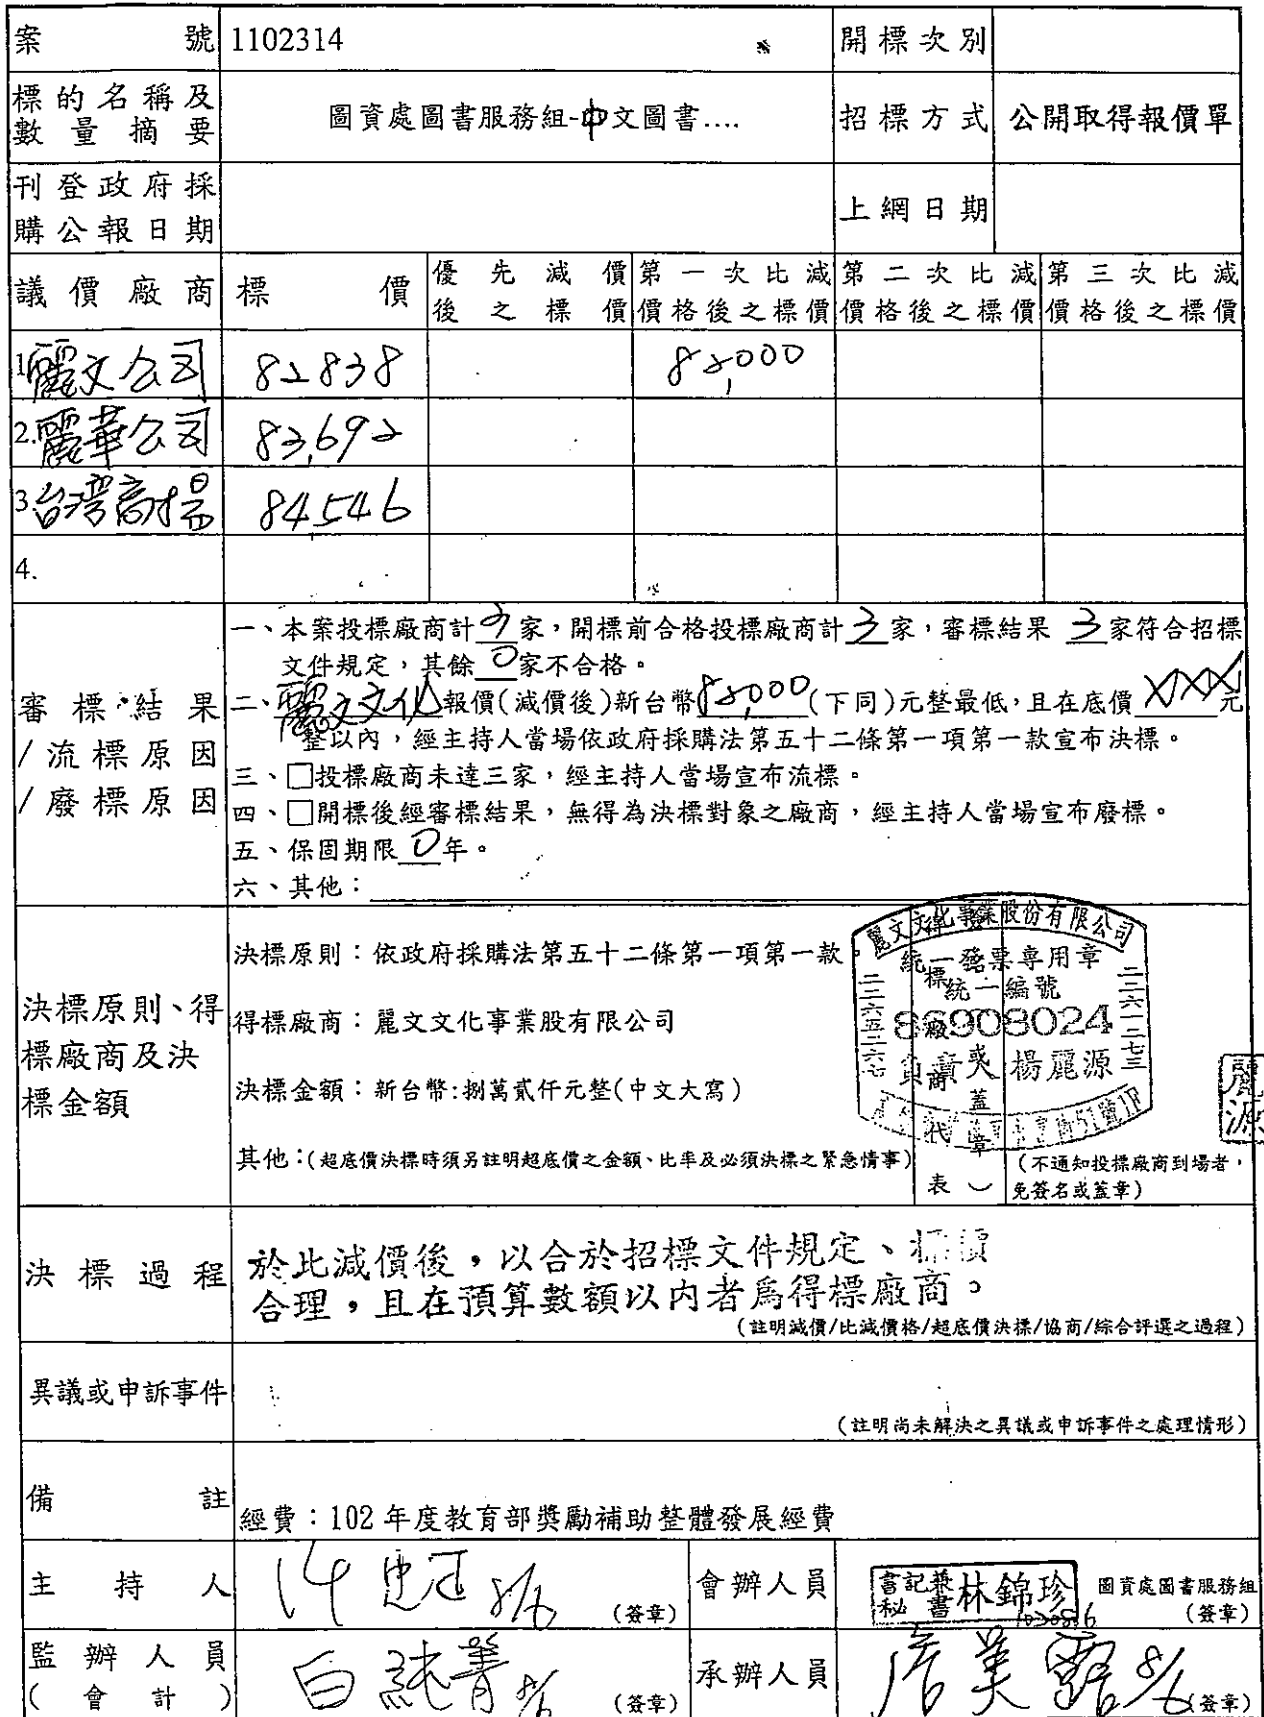 案 號 1102314 開標次別
標的名稱及數量摘要 圖資處圖書服務組-中文圖書.... 招標方式 公開取得報價單
刊登政府採購公報日期 上網日期
議價廠商 標價 優先減價後之標價 第一次比減價格後之標價 第二次比減價格後之標價 第三次比減價格後之標價
1.麗文公司 82838 82,000
2.麗華公司 83,692
3.台灣商 84546
4.
審標結果/流標原因/廢標原因
一、本案投標廠商計3家，開標前合格投標廠商計3家，審標結果 3家符合招標
文件規定，其餘0家不合格。
二、麗文文化報價(減價後)新台幣82,000(下同)元整最低，且在底價XXX元
整以內，經主持人當場依政府採購法第五十二條第一項第一款宣布決標。
三、□投標廠商未達三家，經主持人當場宣布流標。
四、□開標後經審標結果，無得為決標對象之廠商，經主持人當場宣布廢標。
五、保固期限0年。
六、其他：
決標原則、得標廠商及決標金額
決標原則：依政府採購法第五十二條第一項第一款。
得標廠商：麗文文化事業股有限公司
決標金額：新台幣:捌萬貳仟元整(中文大寫)
其他：(超底價決標時須另註明超底價之金額、比率及必須決標之緊急情事)
麗文文化事業股份有限公司
統一發票專用章
統一編號
86908024
負責人 楊麗源
二二六五二六七
二二六一二七三
麗源
(不通知投標廠商到場者，
免簽名或蓋章)
決標過程
於此減價後，以合於招標文件規定、標價
合理，且在預算數額以內者為得標廠商。
(註明減價/比減價格/超底價決標/協商/綜合評選之過程)
異議或申訴事件
(註明尚未解決之異議或申訴事件之處理情形)
備註 經費：102年度教育部獎勵補助整體發展經費
主持人 8/6 (簽章) 會辦人員 書記兼秘書 林錦珍 1020806 圖資處圖書服務組 (簽章)
監辦人員(會計) 白純菁 8/6 (簽章) 承辦人員 詹美 8/6 (簽章)